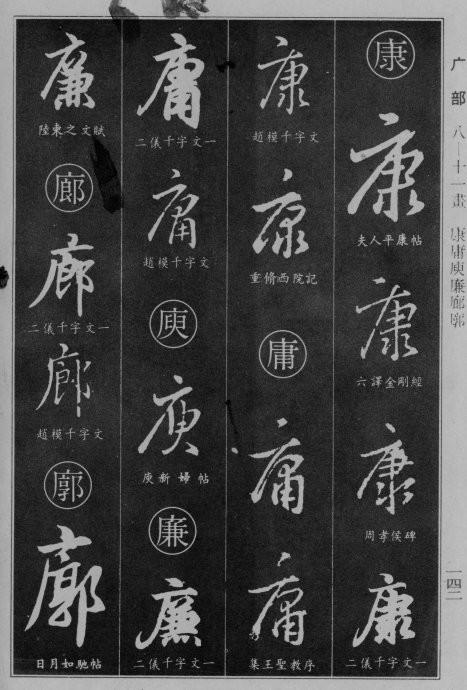 广部 八—十一畫 康庸庾廉廊廓
一四二
康
康
夫人平康帖
康
六譯金剛經
康
周孝侯碑
康
二儀千字文一
康
趙模千字文
康
重脩西院記
庸
庸
庸
集王聖教序
庸
二儀千字文一
庸
趙模千字文
庾
庾
庾新婦帖
廉
廉
二儀千字文一
廉
陸柬之文賦
廊
廊
二儀千字文一
廊
趙模千字文
廓
廓
日月如馳帖